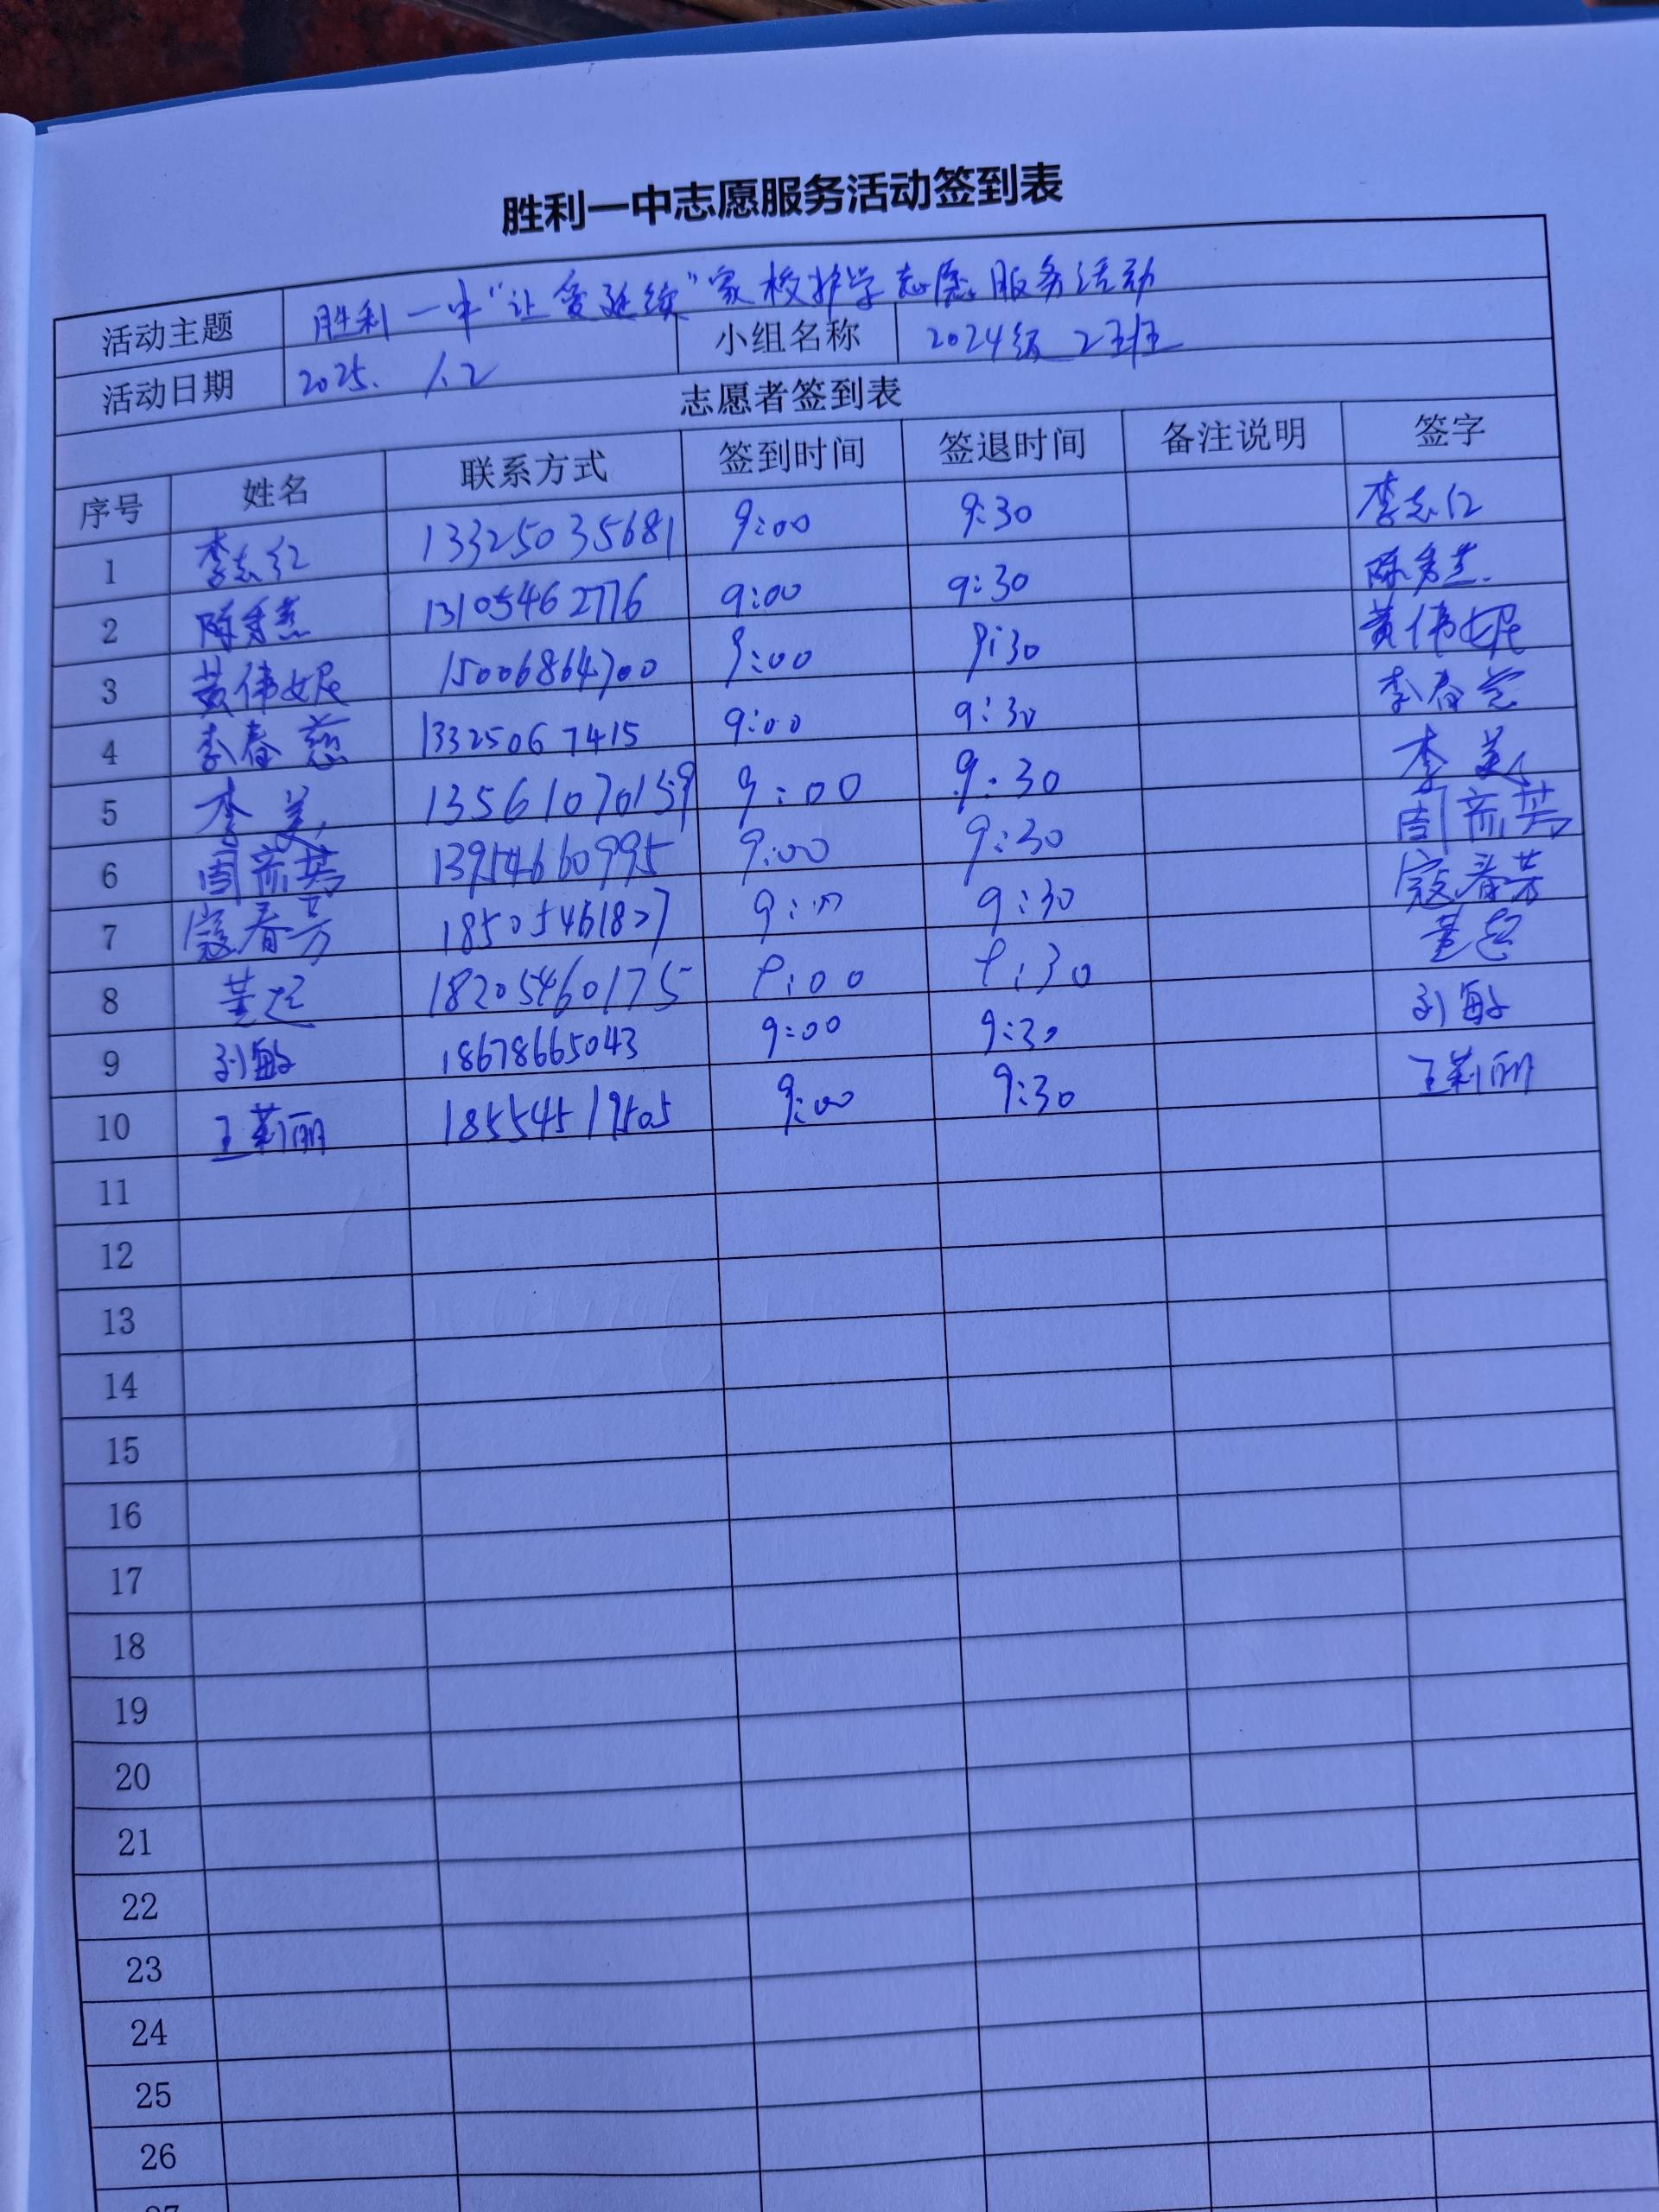 胜利一中志愿服务活动签到表
活动主题 胜利一中"让爱延续"家校护学志愿服务活动
活动日期 2025. 1.2 小组名称 2024级 2班
志愿者签到表
序号 姓名 联系方式 签到时间 签退时间 备注说明 签字
1 李志红 13325035681 9:00 9:30 李志红
2 陈秀 13105462776 9:00 9:30 陈秀
3 黄伟妮 15006864700 9:00 9:30 黄伟妮
4 李春 13325067415 9:00 9:30 李春
5 李美 13561070159 9:00 9:30 李美
6 周 13954660995 9:00 9:30 周
7 寇春芳 18505461827 9:00 9:30 寇春芳
8 董超 18205460175 9:00 9:30 董超
9 刘敏 18678665043 9:00 9:30 刘敏
10 王莉丽 18554519505 9:00 9:30 王莉丽
11
12
13
14
15
16
17
18
19
20
21
22
23
24
25
26